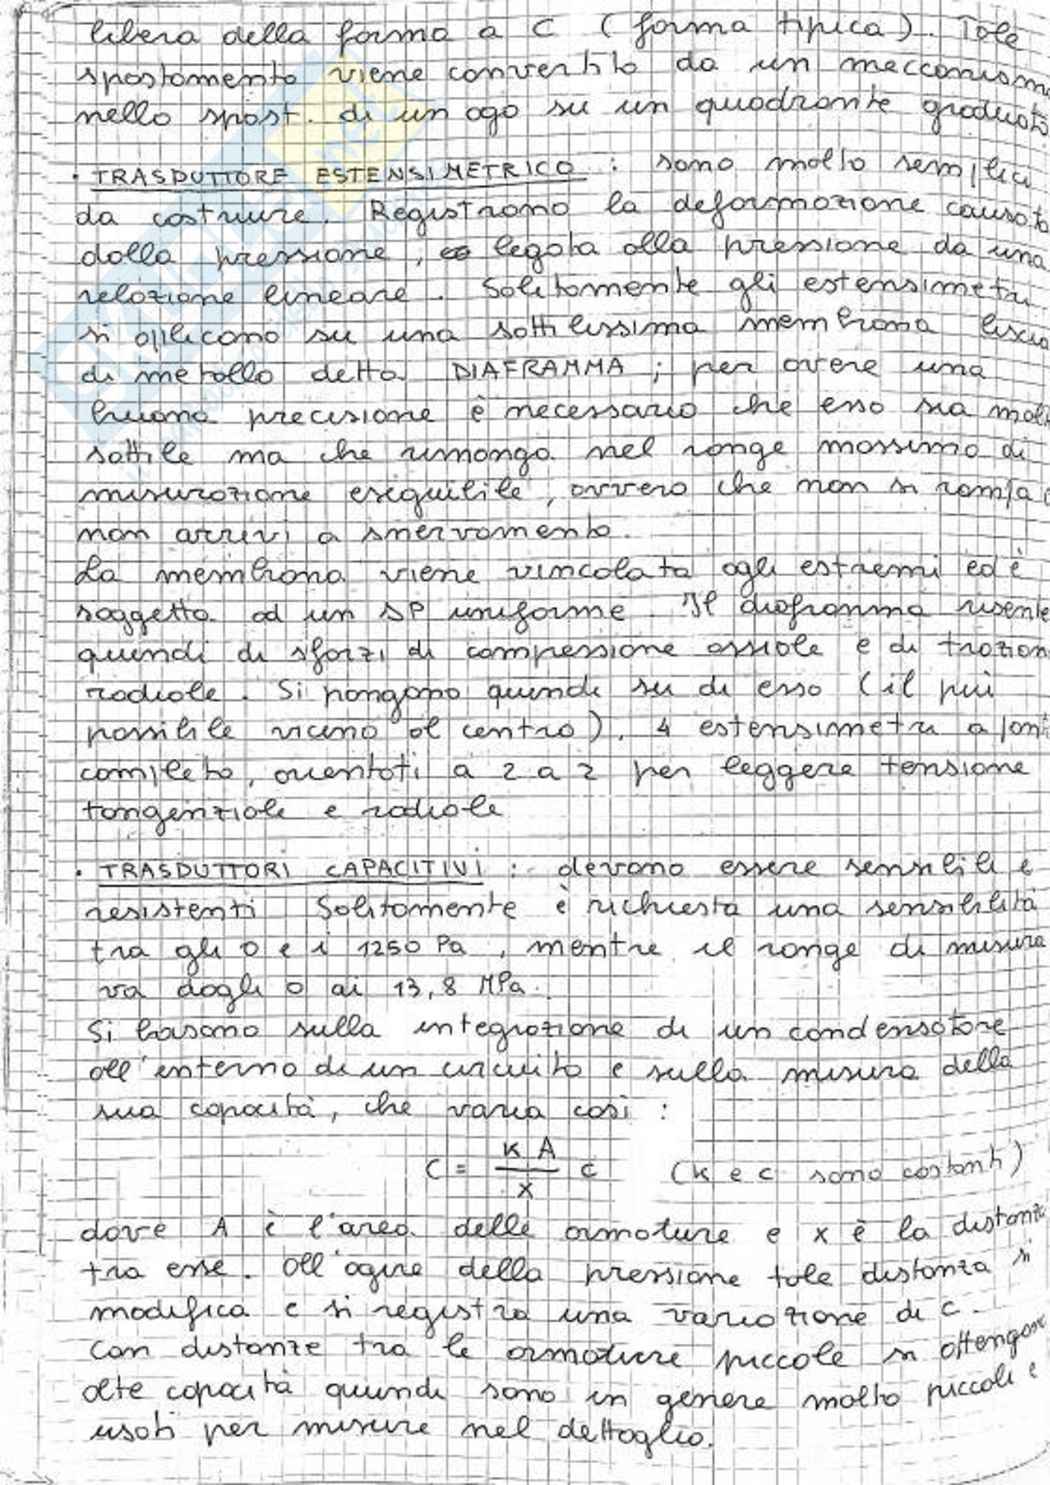 libera della forma a C (forma tipica). Tale
spostamento viene convertito da un meccanismo
nello spost. di un ago su un quadrante graduato
· TRASDUTTORE ESTENSIMETRICO : sono molto semplici
da costruire. Registrano la deformazione causata
dalla pressione, legata alla pressione da una
relazione lineare. Solitamente gli estensimetri
si applicano su una sottilissima membrana liscia
di metallo detta DIAFRAMMA ; per avere una
buona precisione è necessario che esso sia molto
sottile ma che rimanga nel range massimo di
misurazione eseguibile, ovvero che non si rompa e
non arrivi a snervamento.
La membrana viene vincolata agli estremi ed è
soggetta ad un ΔP uniforme. Il diaframma risente
quindi di sforzi di compressione assiale e di trazione
radiale. Si pongono quindi su di esso (il più
possibile vicino al centro), 4 estensimetri a ponte
completo, orientati a 2 a 2 per leggere tensione
tangenziale e radiale
· TRASDUTTORI CAPACITIVI : devono essere sensibili e
resistenti. Solitamente è richiesta una sensibilità
tra gli 0 e i 1250 Pa, mentre il range di misura
va dagli 0 ai 13,8 MPa.
Si basano sulla integrazione di un condensatore
all'interno di un circuito e sulla misura della
sua capacità, che varia così :
C = K A / x c (K e c sono costanti)
dove A è l'area delle armature e x è la distanza
tra esse. All'agire della pressione tale distanza si
modifica e si registra una variazione di C.
Con distanze tra le armature piccole si ottengono
alte capacità quindi sono in genere molto piccoli e
usati per misure nel dettaglio.